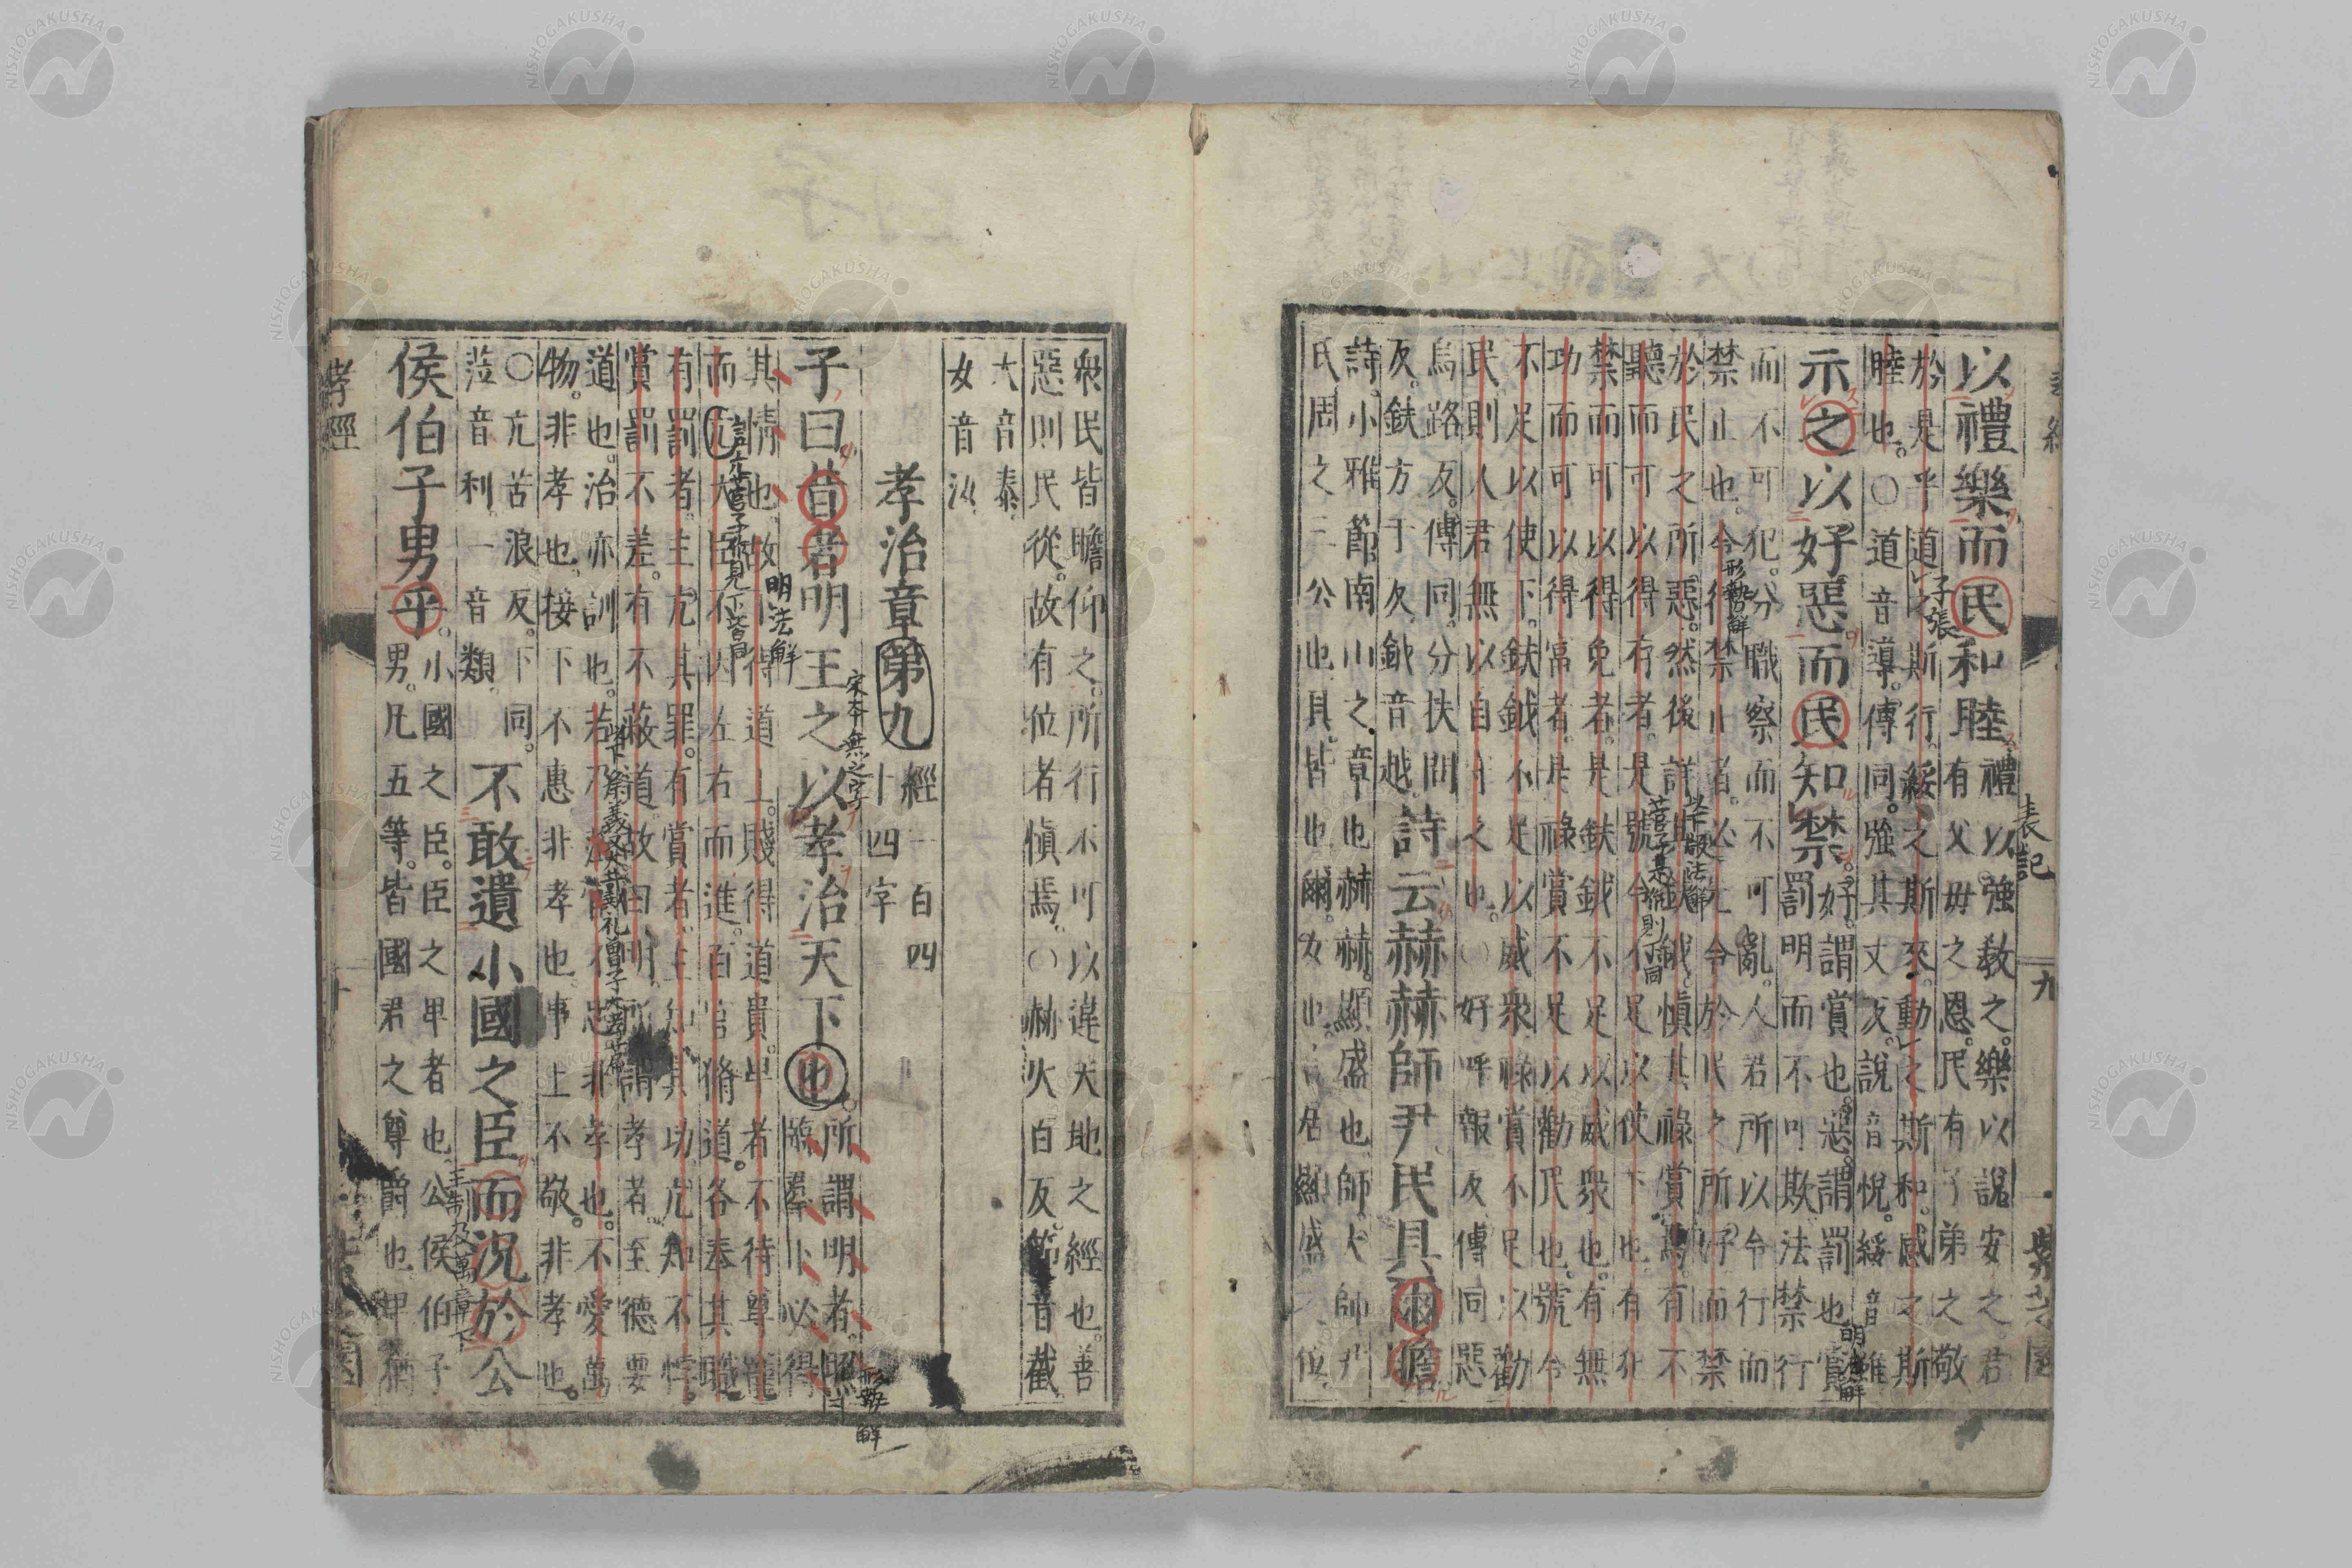 以禮樂而民和睦。禮以強敎之。樂以說安之。君
有父母之恩。民有子弟之敬
於是乎道之斯行。綏之斯來。動之斯和。感之斯
睦也。〇道音導。傳同。強其丈反。說音悅。綏音雖
示之以好惡而民知禁。好。謂賞也。惡。謂罰也。賞
罰明而不可欺。法禁行
而不可犯。分職察而不可亂。人君所以令行而
禁止也。令行禁止者。必先令於民之所好。而禁
於民之所惡。然後詳其鈇鉞。慎其祿賞焉。有不
聽而可以得存者。是號令不足以使下也。有犯
禁而可以得免者。是鈇鉞不足以威衆也。有無
功而可以得富者。是祿賞不足以勸民也。號令
不足以使下。鈇鉞不足以威衆。祿賞不足以勸
民。則人君無以自守之也。〇好呼報反。傳同。惡
烏路反。傳同。分扶問
反。鈇方于反。鉞音越。
詩云赫赫師尹民具爾瞻
詩。小雅節南山之章也。赫赫。顯盛也。師。大師。尹
氏。周之三公也。具。皆也。爾。女也。言居顯盛之位。
衆民皆瞻仰之。所行不可以違天地之經也。善
惡則民從。故有位者慎焉。〇赫火白反。節音截
大音泰。
女音汝
孝治章第九 經一百四
十四字
子曰昔者明王之以孝治天下也。所謂明者。照臨羣下。必得
其情也。故下得道上。賤得道貴。卑者不待尊寵
而亢。大臣不因左右而進。百官脩道。各奉其職
有罰者。主亢其罪。有賞者。主知其功。亢知不悖。
賞罰不差。有不蔽道。故曰明。所謂孝者。至德要
道也。治亦訓也。
物。非孝也。接下不惠。非孝也。事上不敬。非孝也。
〇亢苦浪反。下同。
蒞音利。一音類。
不敢遺小國之臣而況於公
侯伯子男乎。小國之臣。臣之卑者也。公侯伯子
男。凡五等。皆國君之尊爵也。卑猶
孝經
表記
九
子張
形勢解
明法解
宋本無之字
形勢解